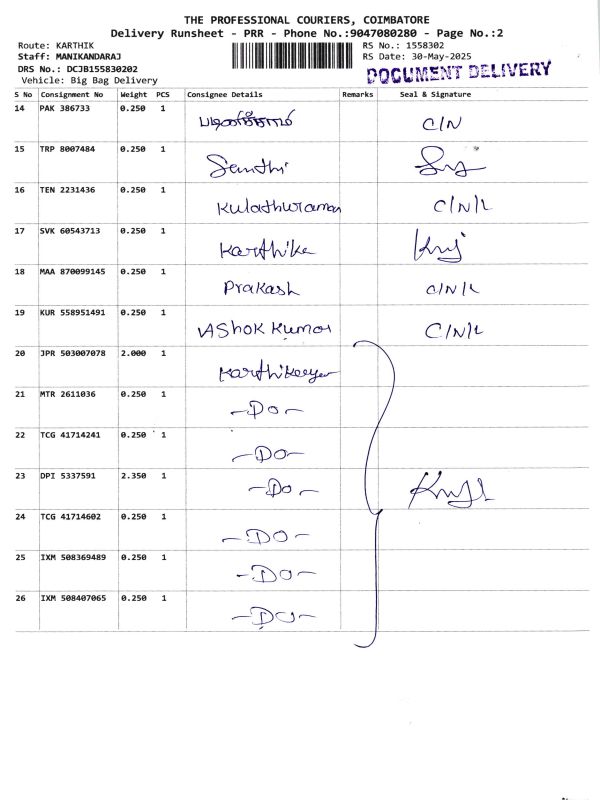 THE PROFESSIONAL COURIERS, COIMBATORE
Delivery Runsheet - PRR - Phone No.:9047080280 - Page No.:2
Route: KARTHIK RS No.: 1558302
Staff: MANIKANDARAJ RS Date: 30-May-2025
DRS No.: DCJB155830202 DOCUMENT DELIVERY
Vehicle: Big Bag Delivery
S No Consignment No Weight PCS Consignee Details Remarks Seal & Signature
14 PAK 386733 0.250 1 C/N
15 TRP 8007484 0.250 1 Santhi
16 TEN 2231436 0.250 1 Kulathuraman C/N/L
17 SVK 60543713 0.250 1 Karthika
18 MAA 870099145 0.250 1 Prakash C/N/L
19 KUR 558951491 0.250 1 Ashok Kumar C/N/L
20 JPR 503007078 2.000 1 Karthikeeyan
21 MTR 2611036 0.250 1 -Do-
22 TCG 41714241 0.250 1 -Do-
23 DPI 5337591 2.350 1 -Do-
24 TCG 41714602 0.250 1 -Do-
25 IXM 508369489 0.250 1 -Do-
26 IXM 508407065 0.250 1 -Do-